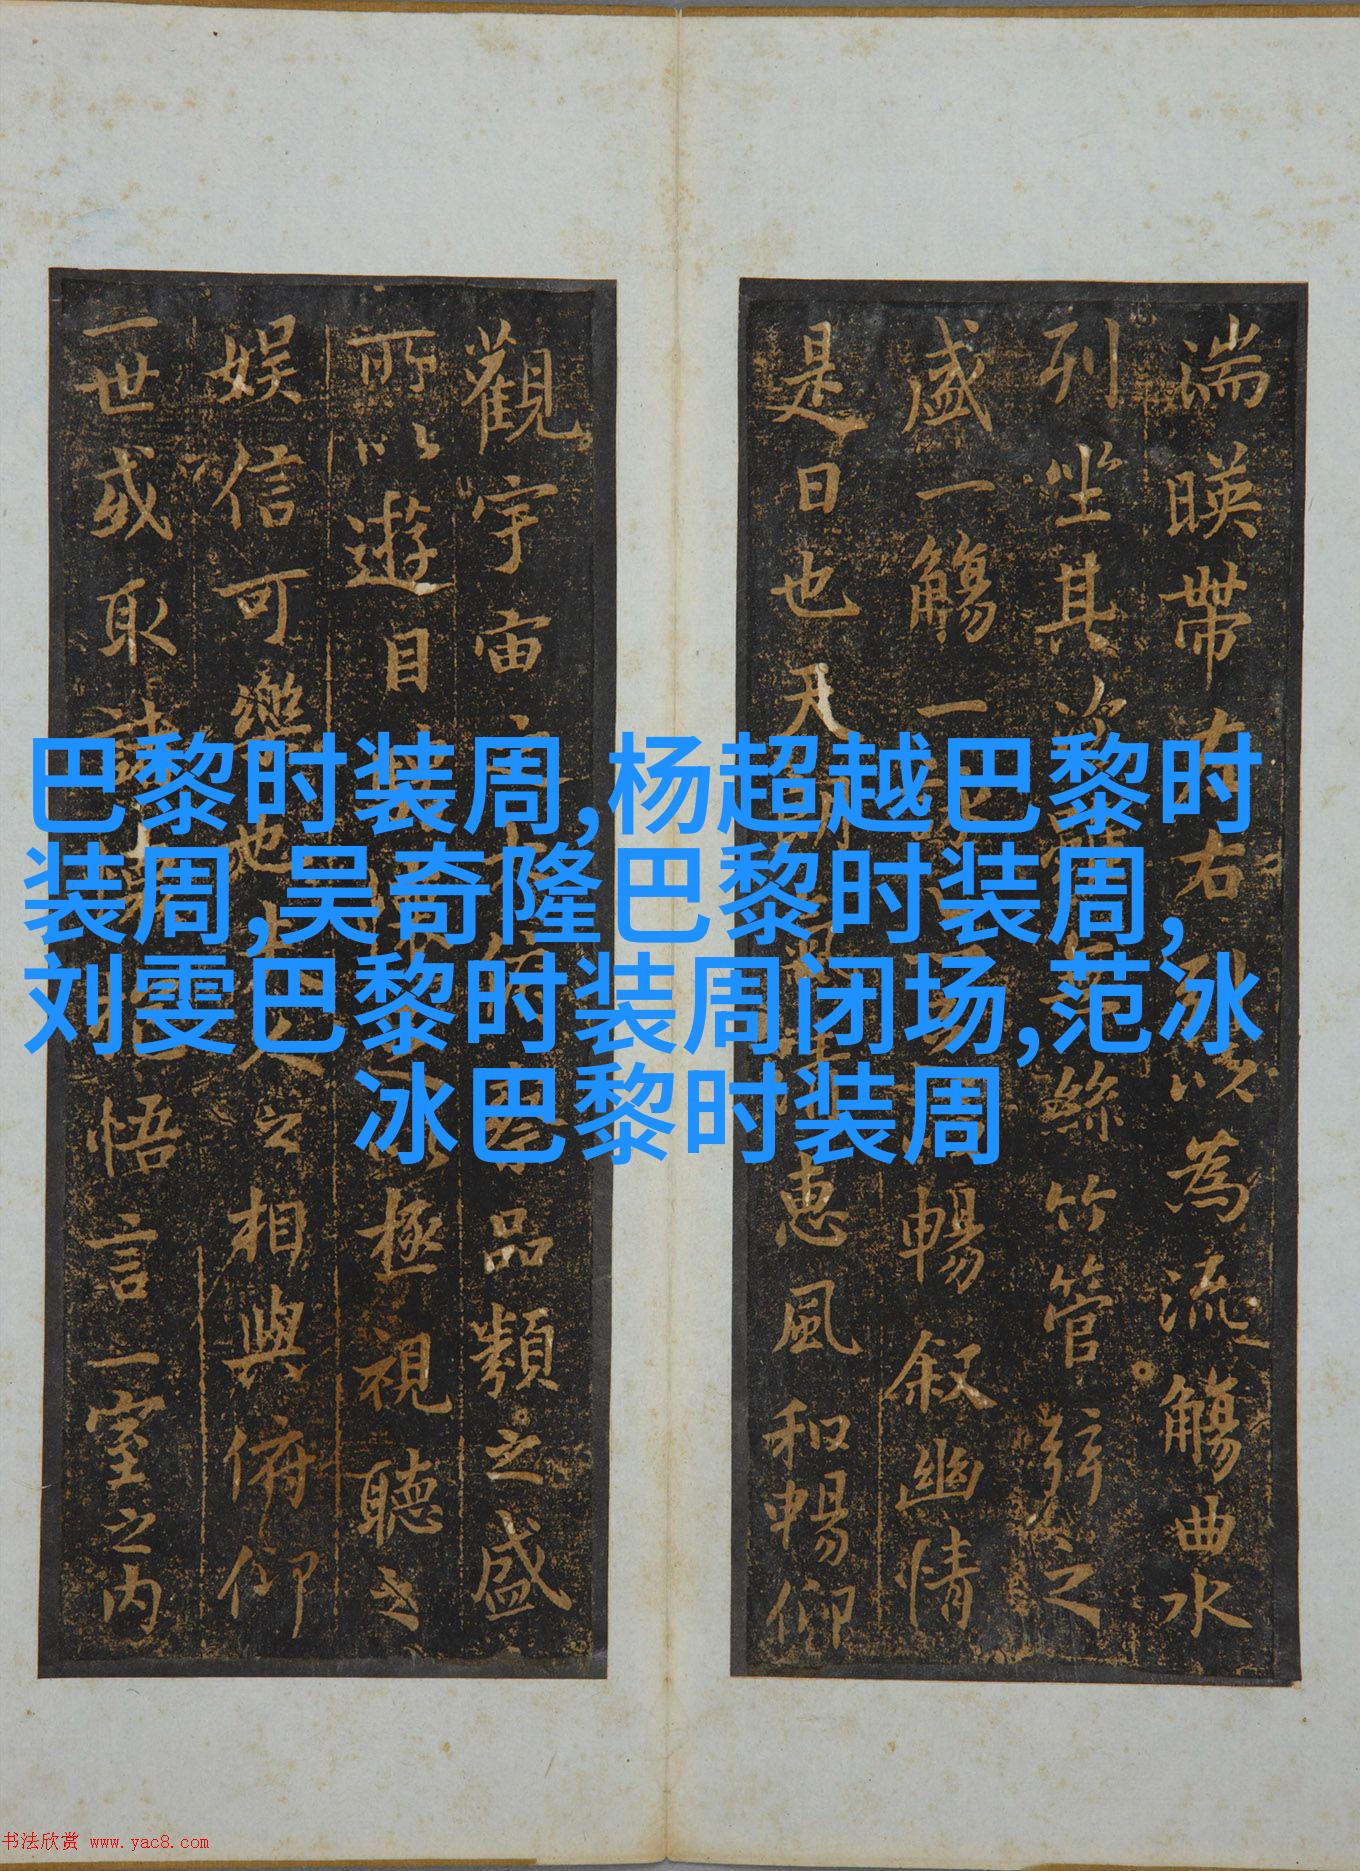 湍暎帶右以為流觴曲水
列坐其絲竹管弦之
盛一觴一暢叙幽情
是日也天惠風和暢仰
觀宇宙品類之盛
所以遊目極視聽之
娱信可樂也人之相與俯仰
一世或取諸悟言一室之内
巴黎时装周,杨超越巴黎时
装周,吴奇隆巴黎时装周,
刘雯巴黎时装周闭场,范冰
冰巴黎时装周
书法欣赏 www.yac8.com